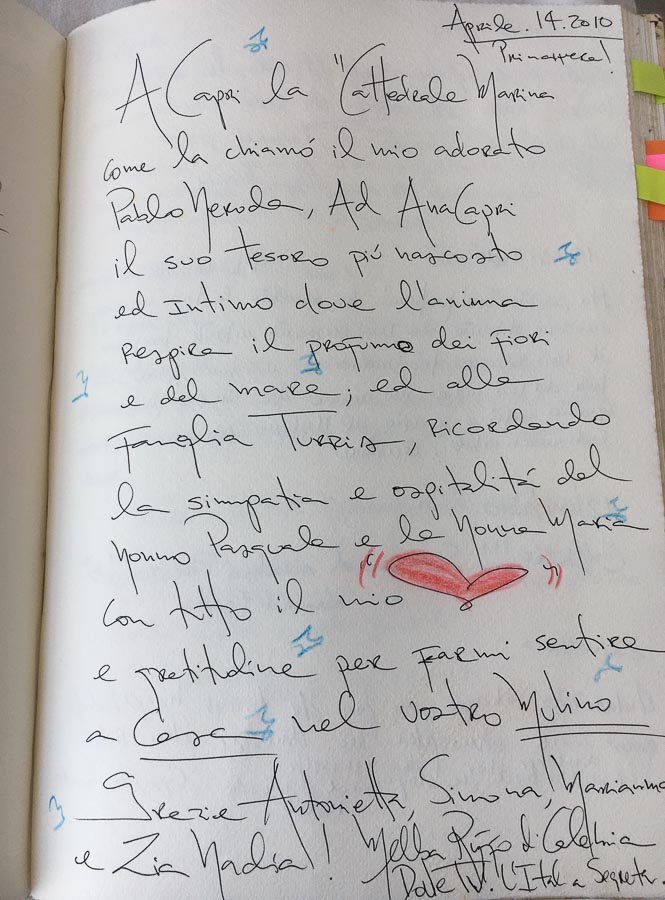 Aprile. 14. 2010
Primavera!
A Capri la "Cattedrale" Marina
come la chiamó il mio adorato
Pablo Neruda, Ad AnaCapri
il suo tesoro piú nascosto
ed intimo dove l'anima
Respira il profumo dei fiori
e del mare; ed alla
Famiglia Turris, Ricordando
la simpatia e ospitalitá del
Nonno Pasquale e la Nonna Maria
con tutto il mio
e gratitudine per farmi sentire
a Casa nel vostro Mulino
Grazie Antonietta, Simona, Marianna
e Zia Nadia! Melba di